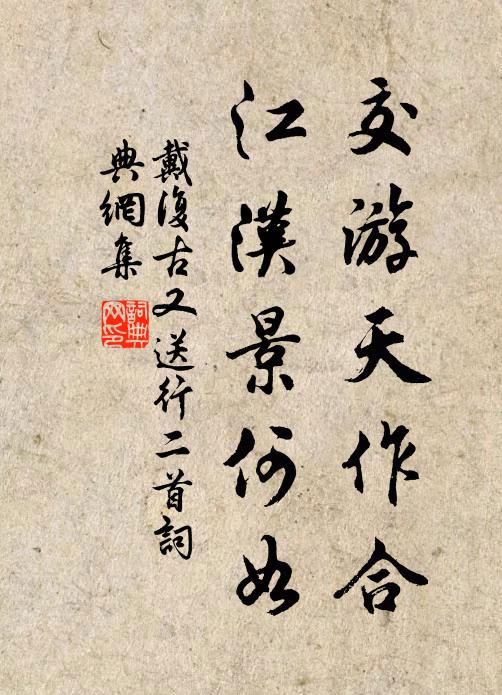 交游天作合
江漢景何如
戴復古又送行二首詞
典網集
詞典網印